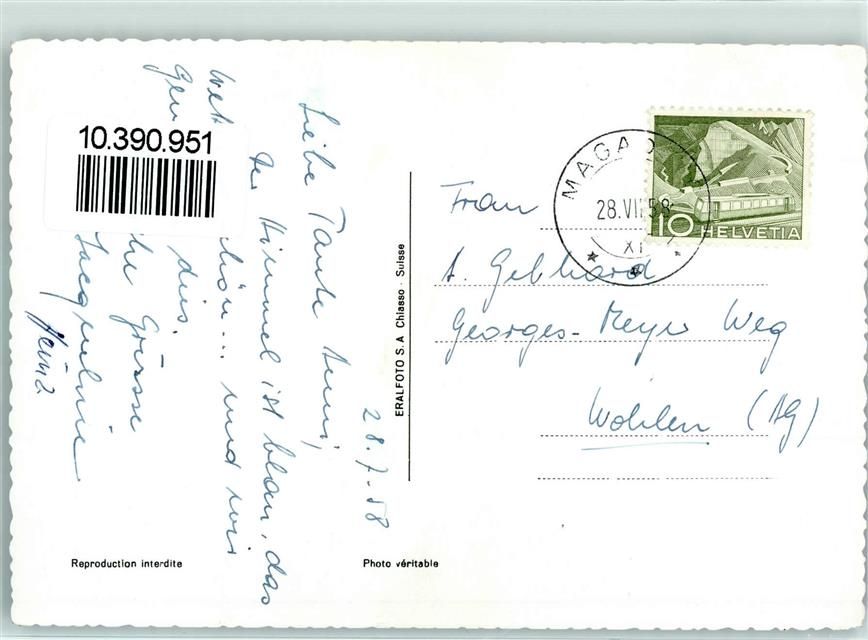 28.7.58
Liebe Tante Anni,
der Himmel ist blau, das
Wet schön... und wir
Gen dies.
Grüsse
Jacqueline
Heinz
10.390.951
ERALFOTO S.A Chiasso - Suisse
Reproduction interdite
Photo véritable
MAGAD
28.VII.58
XI
10 HELVETIA
Frau
A. Gebhard
Georges-Meyer Weg
Wohlen (AG)